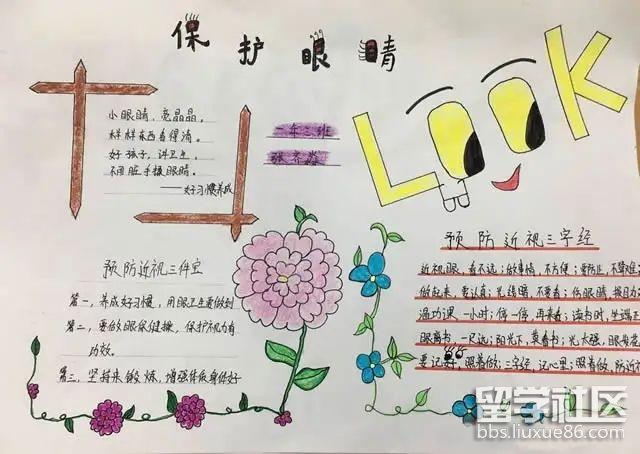 保护眼睛
LOOK
小眼睛，亮晶晶，
样样东西看得清。
好孩子，讲卫生，
不用脏手揉眼睛。
——好习惯养成
一年二班
预防近视三件宝
第一，养成好习惯，用眼卫生要做到
第二，要做眼保健操，保护视力有
功效。
第三，坚持来锻炼，增强体质身体好
预防近视三字经
近视眼，看不远；做事情，不方便；要防止，不算难；
做起来，要认真；光线暗，不要看；伤眼睛，
温功课，一小时；停一停，再来看；读书时，
眼离书，一尺远；阳光下，莫看书；光太强，眼
要记好，眼养做；三字经，记心里；照着做，防近
留学社区
bbs.liuxue86.com